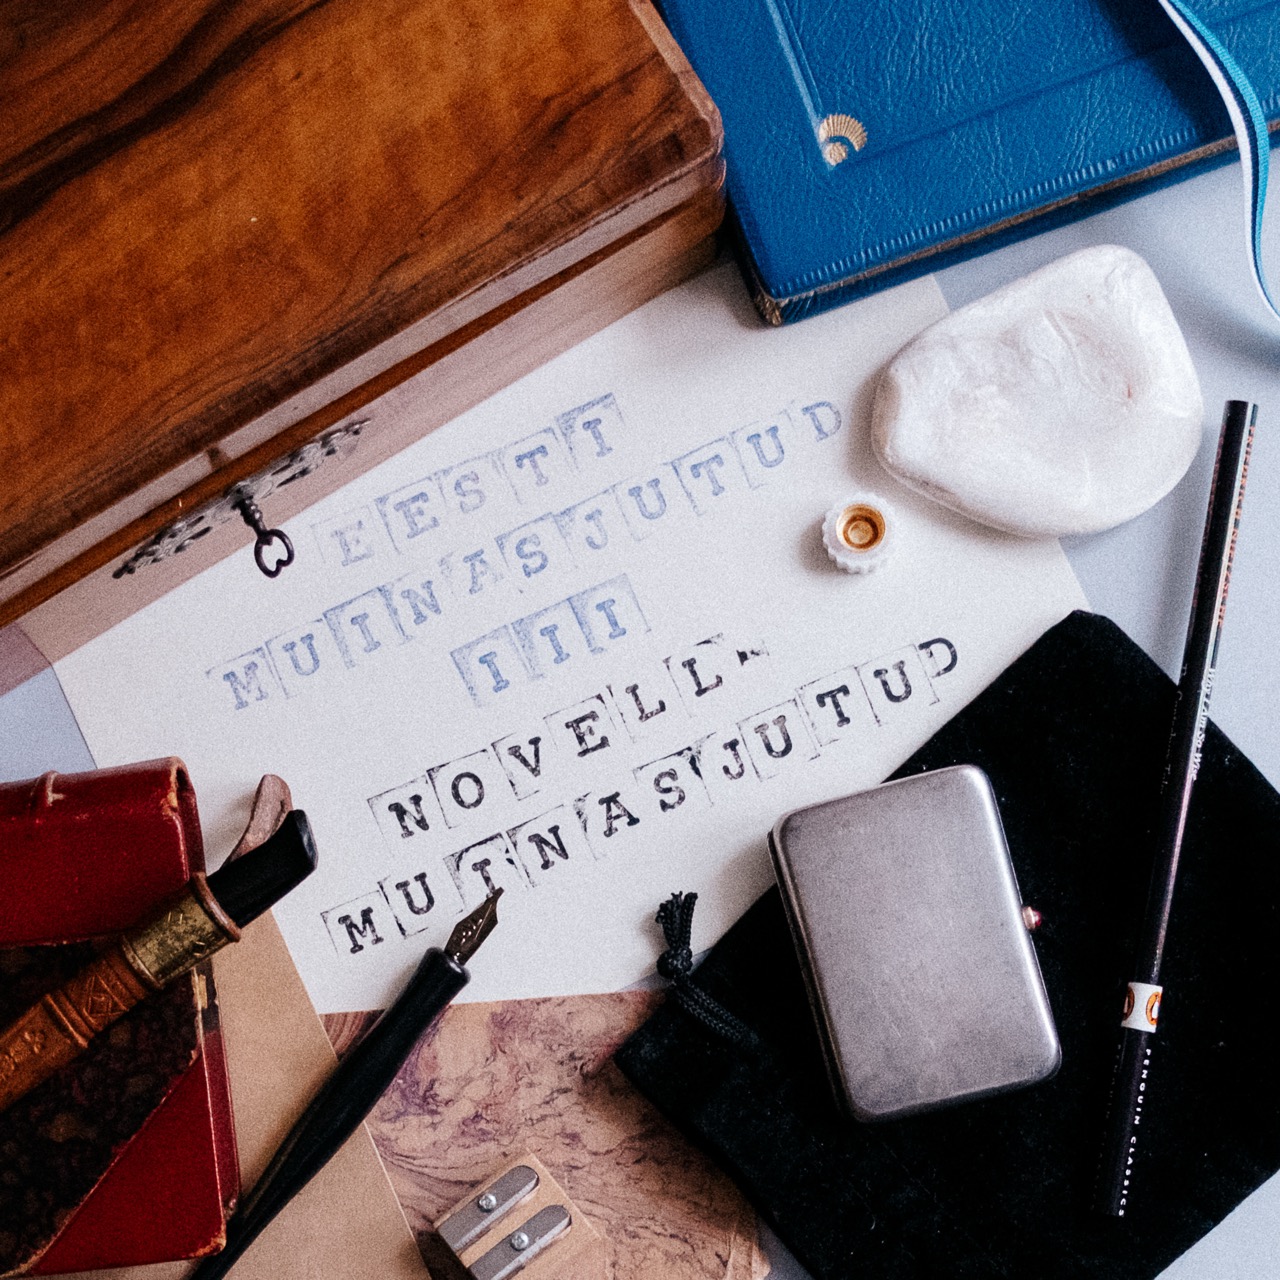 EESTI
MUINASJUTUD
III
NOVELL
MUINASJUTUD
PENGUIN CLASSICS